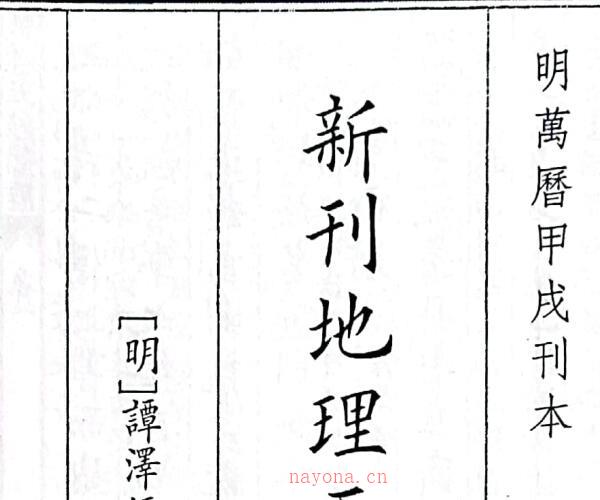 明萬曆甲戌刊本
新刊地理
[明]譚澤
nayona.cn